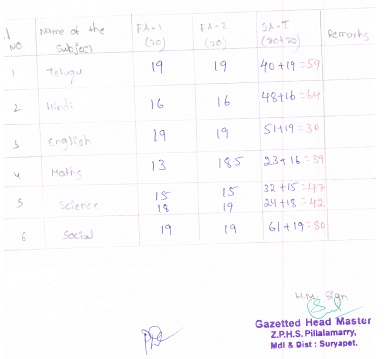 Sl NO Name of the Subject FA-1 (20) FA-2 (20) SA-I (80+20) Remarks
1 Telugu 19 19 40+19=59
2 Hindi 16 16 48+16=64
3 English 19 19 51+19=30
4 Maths 13 18.5 23+16=39
5 Science 15 15 32+15=47
18 19 24+18=42
6 Social 19 19 61+19=80
H.M. Sign
Gazetted Head Master
Z.P.H.S. Pillalamarry,
Mdl & Dist : Suryapet.